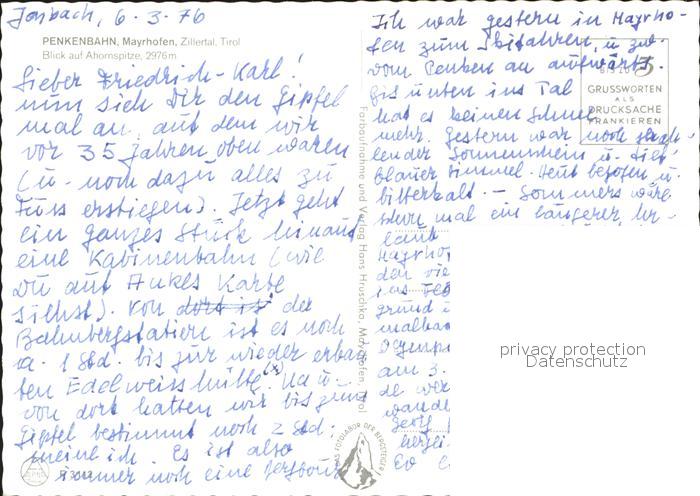 Jenbach, 6.3.76
PENKENBAHN, Mayrhofen, Zillertal, Tirol
Blick auf Ahornspitze, 2976 m
Lieber Friedrich-Karl!
nun sieh Dir den Gipfel
mal an, auf dem wir
vor 35 Jahren oben waren
(u. noch dazu alles zu
Fuss erstiegen). Jetzt geht
ein ganzes Stück hinauf
eine Kabinenbahn (wie
Du auf Ankes Karte
siehst). Von dort ist der
Bahnbergstation ist es noch
ca. 1 Std. bis zur wieder erbau-
ten Edelweisshütte (x). Na u.
von dort hatten wir bis zum
Gipfel bestimmt noch 2 Std.
meine ich. Es ist also
immer noch eine
Farbaufnahme und Verlag Hans Hruschka, Mayrhofen, Tirol
DAS FOTOLABOR DER BERGSTEIGER
Ich war gestern in Mayrho-
fen zum Skifahren, u. zw.
vom Penken an aufwärts.
Bis unten ins Tal
hat es keinen Schnee
mehr. Gestern war noch strah-
lender Sonnenschein u. tief-
blauer Himmel. Heut bezogen u.
bitterkalt. – Sommers wäre
schon mal ein längerer Ur-
laub
Mayrho
den vie
ins
grund
am 3.
de wer
wande
Georg
herzli
GRUSSWORTEN
ALS
DRUCKSACHE
FRANKIEREN
privacy protection
Datenschutz